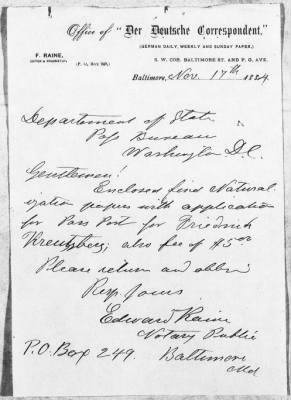 Office of "Der Deutsche Correspondent,"
(GERMAN DAILY, WEEKLY AND SUNDAY PAPER,)
F. RAINE,
EDITOR & PROPRIETOR.
(P. O. Box 249.)
S. W. COR. BALTIMORE ST. AND P. O. AVE.
Baltimore, Nov. 17th, 1884.
Departement of State
Pass Bureau
Washington D.C.
Gentlemen!
Enclosed find Natural
ization papers with application
for Pass Port for Friedrich
Kreuzberg; also fee of $5.00
Please return and oblige
Resp. Yours
Edward Raine
Notary Public
P.O. Box 249. Baltimore
Md